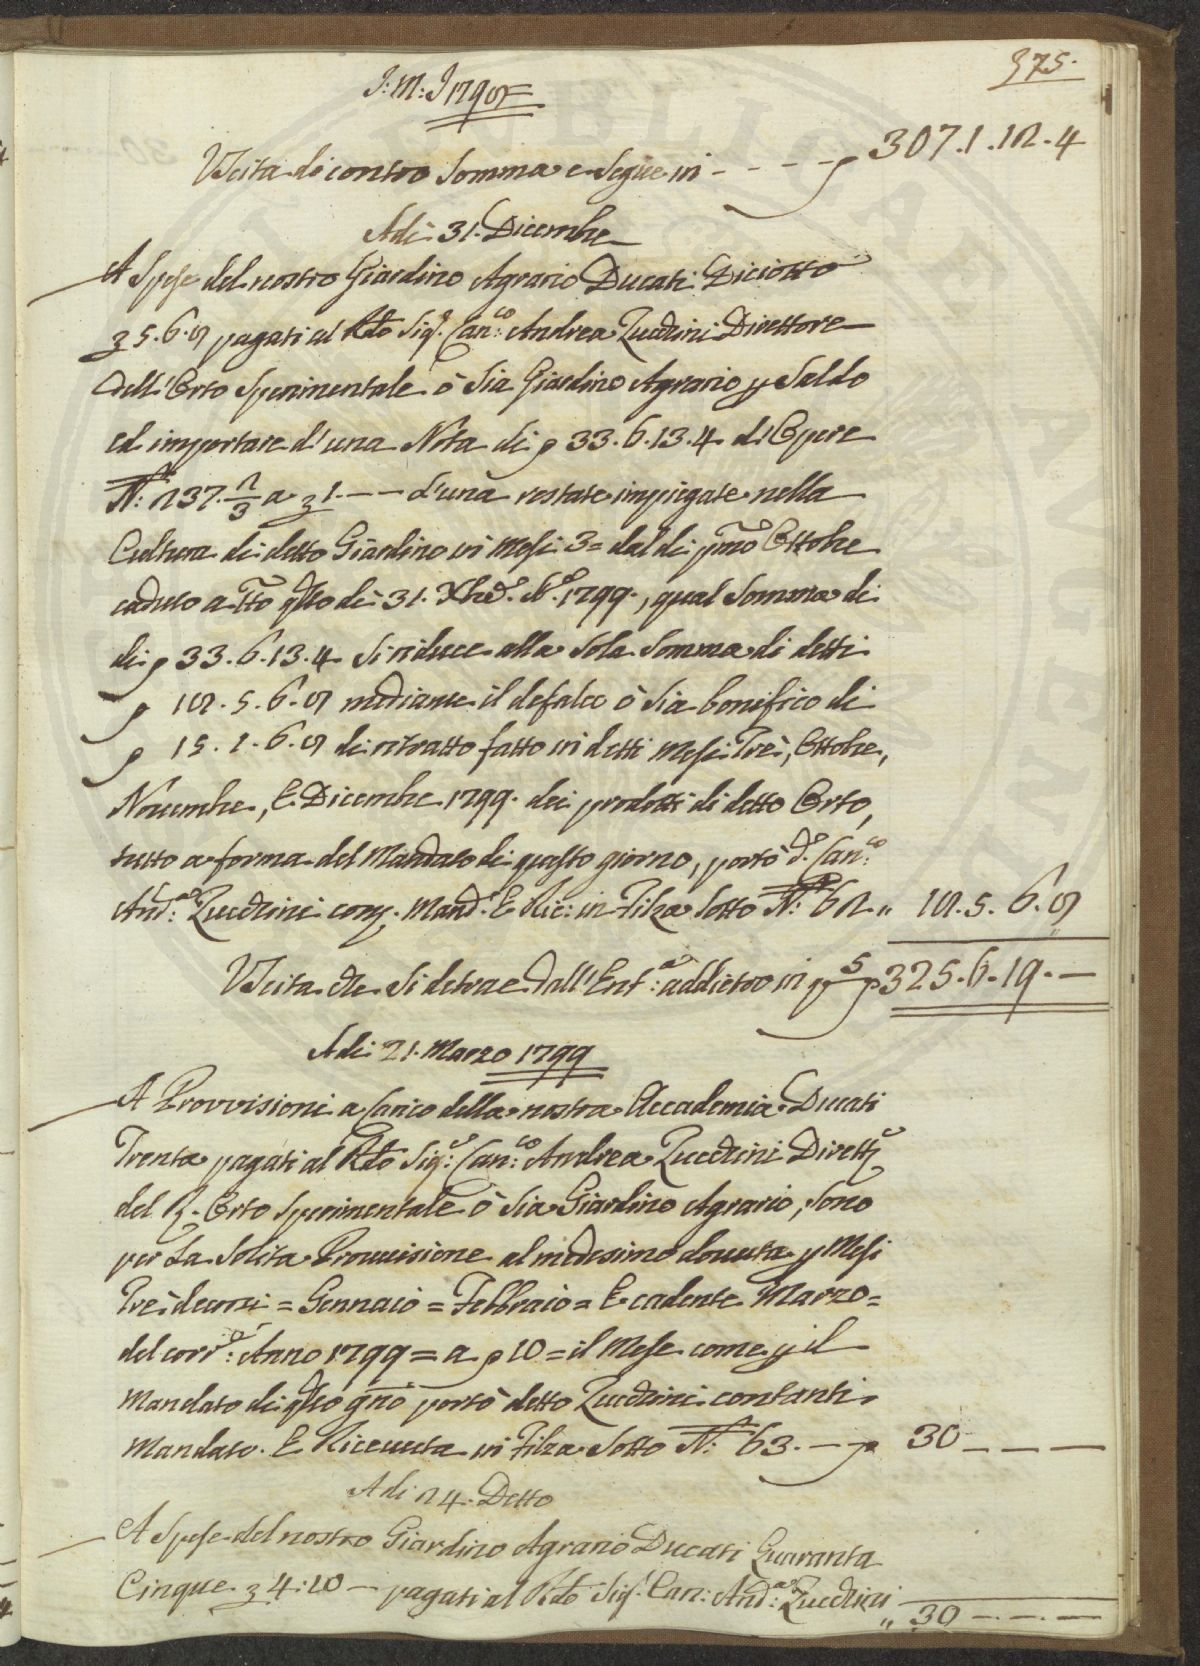 375.
J: M: J 1798
Uscita di contro Somma e Segue in - - - - ƿ 307.1.12.4
Adi 31. Dicembre
A Spese del nostro Giardino Agrario Ducati Diciotto
ʒ 5.6.8 pagati al Rdo Sigr. Canco: Andrea Zucchini Direttore
dell'Orto Sperimentale ò Sia Giardino Agrario p Saldo
ed importare d'una Nota di ƿ 33.6.13.4 di Opere
N: 237. 2/3 a ʒ 1.-- d'una restate impiegate nella
Cultura di detto Giardino in Mesi 3= dal di pmo Ottobre
caduto a Tto qsto di 31. Xbre. So. 1799., qual Somma di
di ƿ 33.6.13.4 Si riduce alla Sola Somma di detti
ƿ 18.5.6.8 mediante il defalco ò Sia bonifico di
ƿ 15.1.6.8 di ritratto fatto in detti Mesi Tre, Ottobre,
Novembre, E Dicembre 1799. dei prodotti di detto Orto,
tutto a forma del Mandato di questo giorno, portò do. Canco:
Andra: Zucchini cont. Mando. E Ric: in Filza Sotto N: 62 „ 18.5.6.8
Uscita che Si detrae dall'Enta: addietro in 5 ƿ 325.6.19.—
Adi 21. Marzo 1799
A Provvisioni a Carico della nostra Accademia Ducati
Trenta pagati al Rdo Sigr: Canco: Andrea Zucchini Dirette
del R. Orto Sperimentale ò Sia Giardino Agrario, Sono
per La Solita Provvisione al medesimo dovuta p Mesi
Tre decorsi = Gennaio = Febbraio = E cadente Marzo =
del corre: Anno 1799 = a ƿ 10 = il Mese come p il
Mandato di qsto gno portò detto Zucchini contanti
Mandato. E Ricevuta in Filza Sotto N: 63. — ƿ 30 — — —
Adi 24. Detto
A Spese del nostro Giardino Agrario Ducati Quaranta
Cinque ʒ 4:10 — pagati al Rdo Sigr. Can: Andra: Zucchini
„ 30 —.—.—